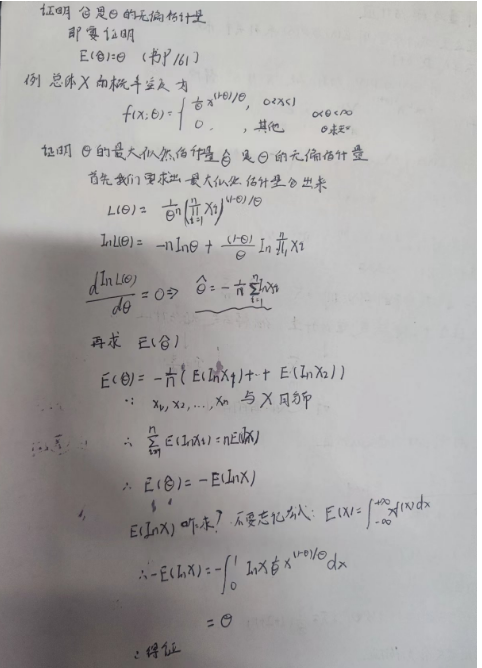 证明 θ̂ 是 θ 的无偏估计量
即要证明
E(θ̂)=θ (书P161)
例 总体X的概率密度为
f(x;θ)= { 1/θ x^((1-θ)/θ), 0<x<1 0<θ<+∞
0, 其他 θ未知
证明 θ的最大似然估计量θ̂ 是 θ的无偏估计量
首先我们要求出最大似然估计量θ̂出来
L(θ)= 1/θ^n (∏_{i=1}^n Xi)^((1-θ)/θ)
InL(θ)= -nInθ + (1-θ)/θ In ∏_{i=1}^n Xi
dInL(θ)/dθ =0⇒ θ̂=-1/n ∑_{i=1}^n InXi
再求 E(θ̂)
E(θ̂)= -1/n ( E(InX1)+··+ E(InXn))
∵ X1, X2, ..., Xn 与X同分布
∴ ∑_{i=1}^n E(InXi)=nE(InX)
∴ E(θ̂)= -E(InX)
E(InX) 咋求? 不要忘记公式: E(X)=∫_{-∞}^{+∞} xf(x)dx
∴-E(InX)=-∫_0^1 InX 1/θ x^((1-θ)/θ) dx
= θ
∴得证